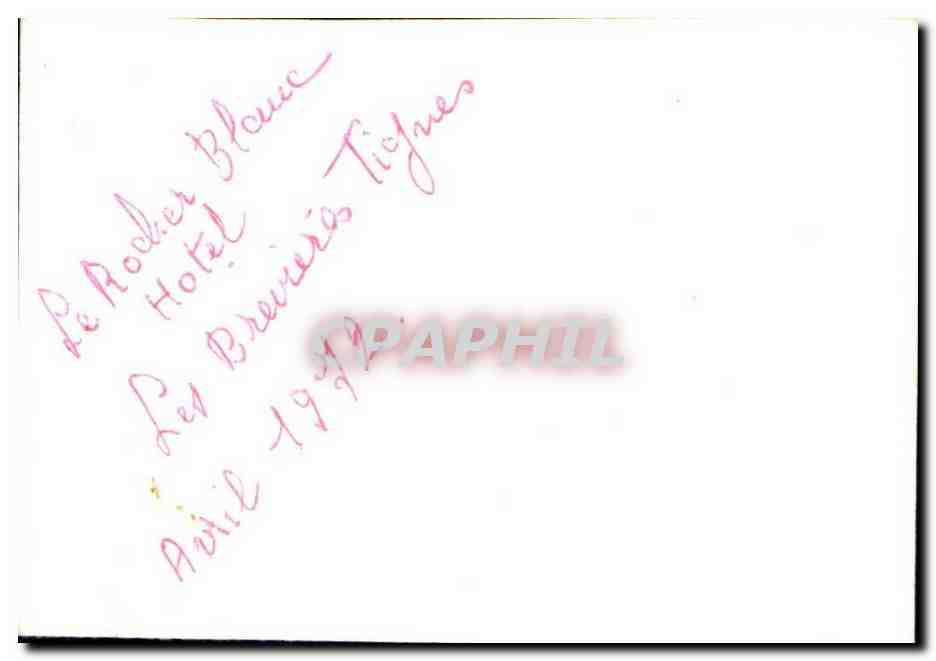 Le Rocher Blanc
Hotel
Les Brevières Tignes
Avril 1972
CPAPHIL